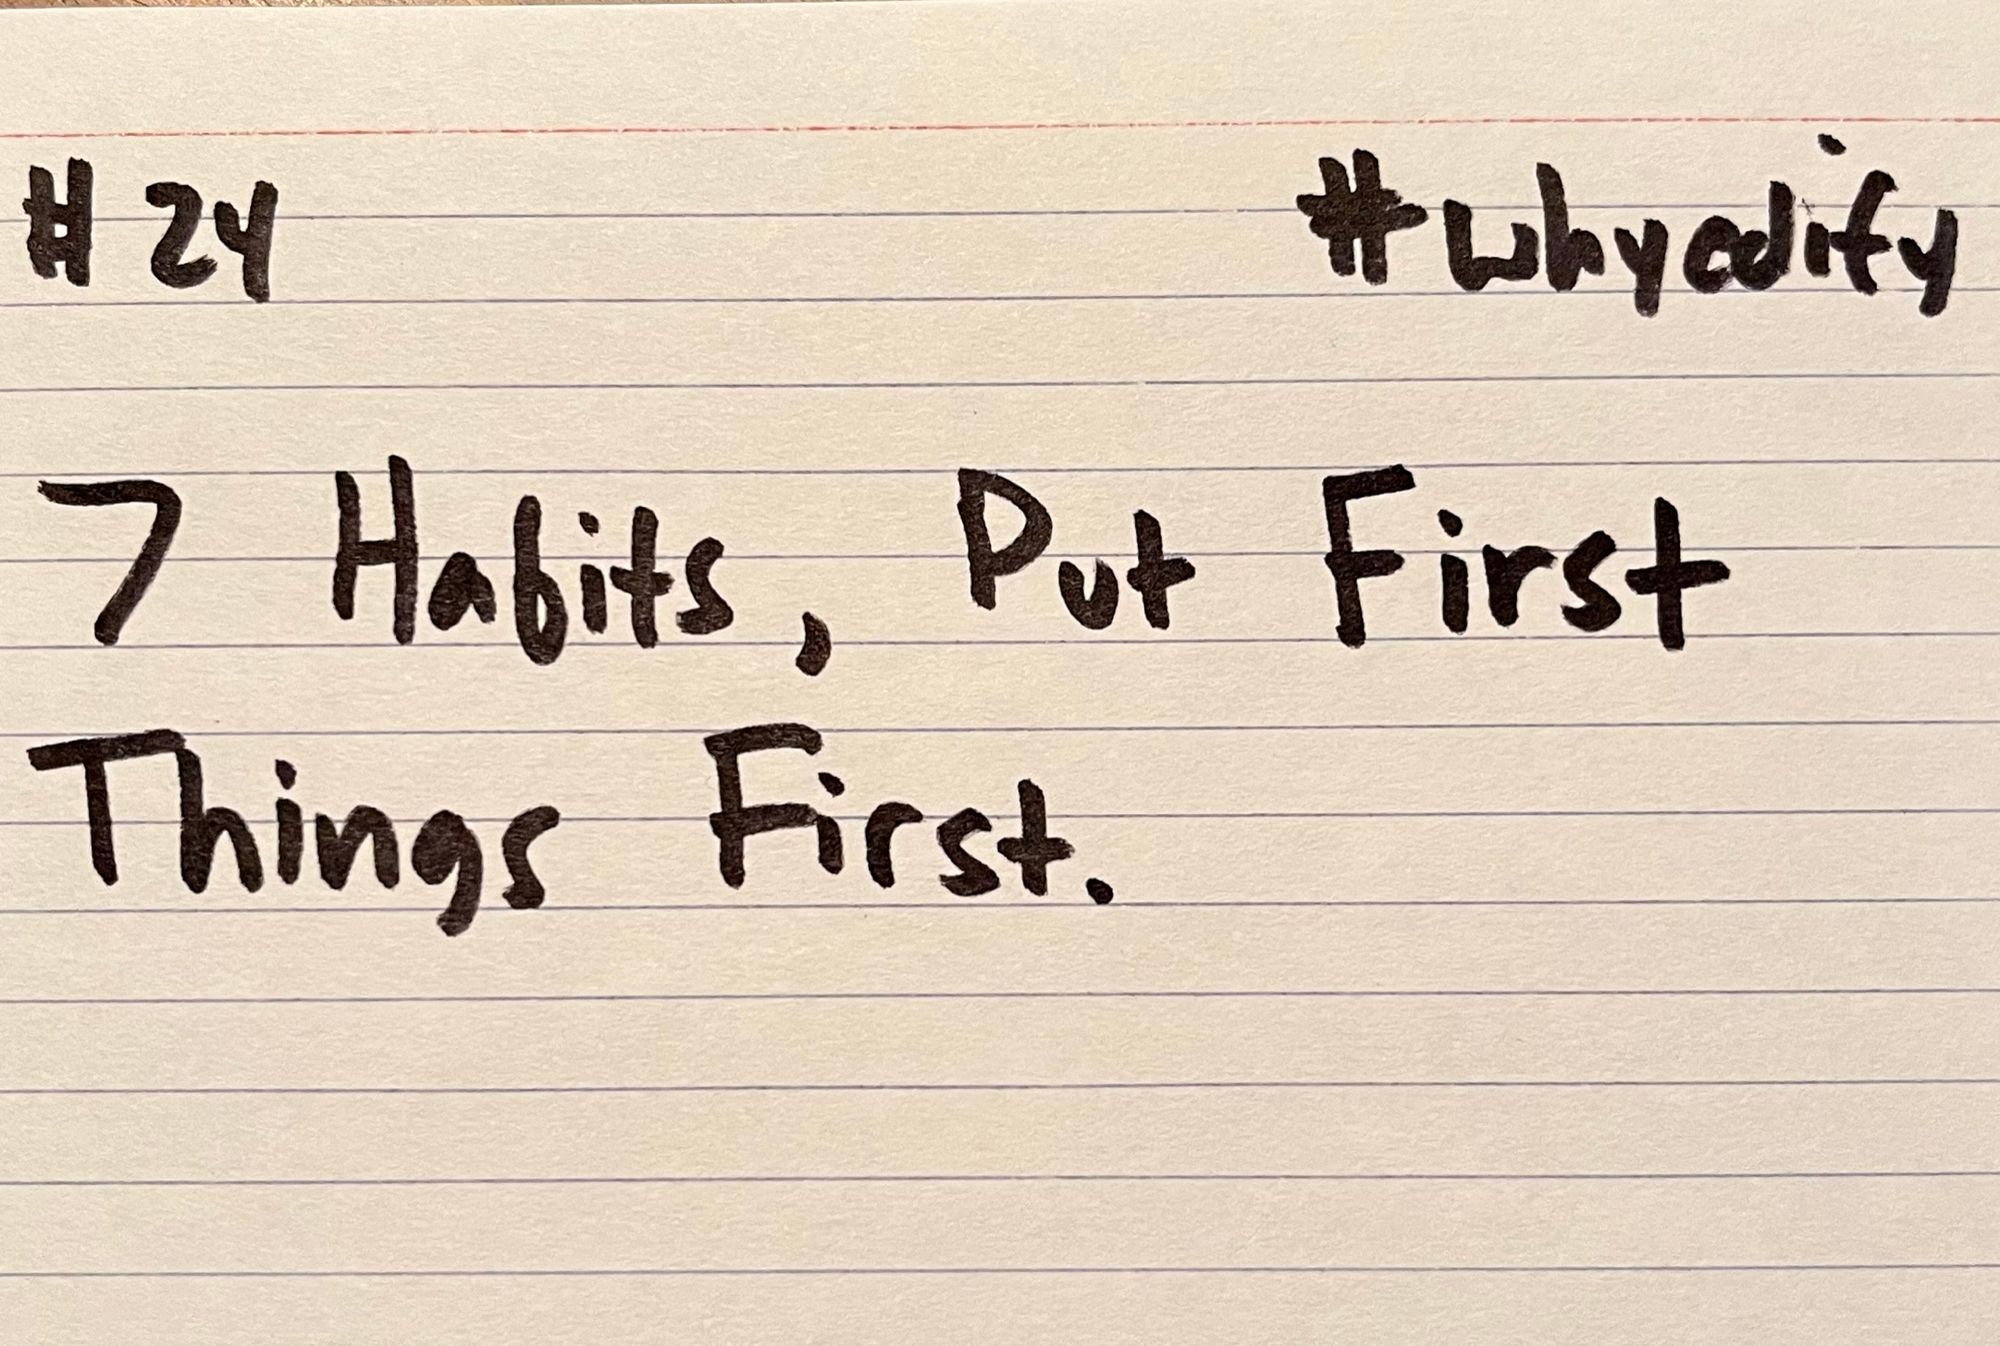 #24 #whyedify
7 Habits, Put First
Things First.